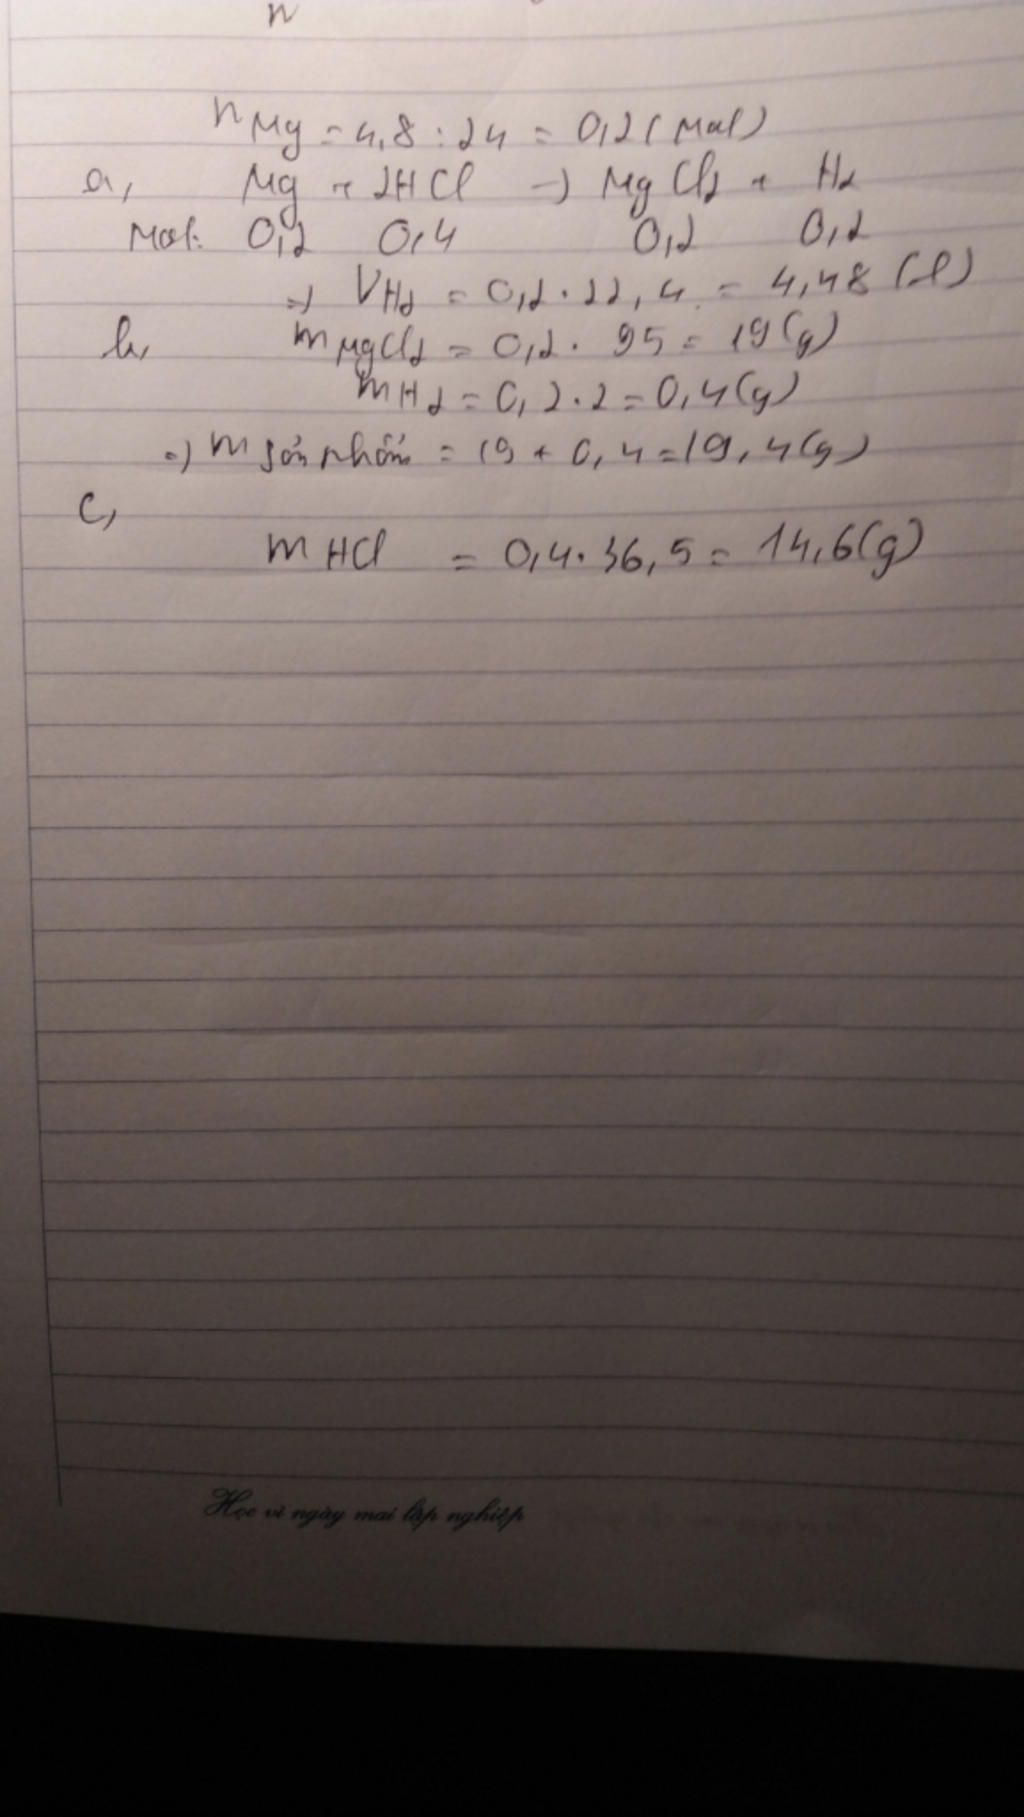 n
nMg = 4,8 : 24 = 0,2 (mol)
a, Mg + 2HCl → MgCl2 + H2
Mol: 0,2 0,4 0,2 0,2
=> VH2 = 0,2 . 22,4 = 4,48 (l)
b, mMgCl2 = 0,2 . 95 = 19 (g)
mH2 = 0,2 . 2 = 0,4 (g)
=> m sản phẩm = 19 + 0,4 = 19,4 (g)
c,
mHCl = 0,4 . 36,5 = 14,6 (g)
Học vì ngày mai lập nghiệp